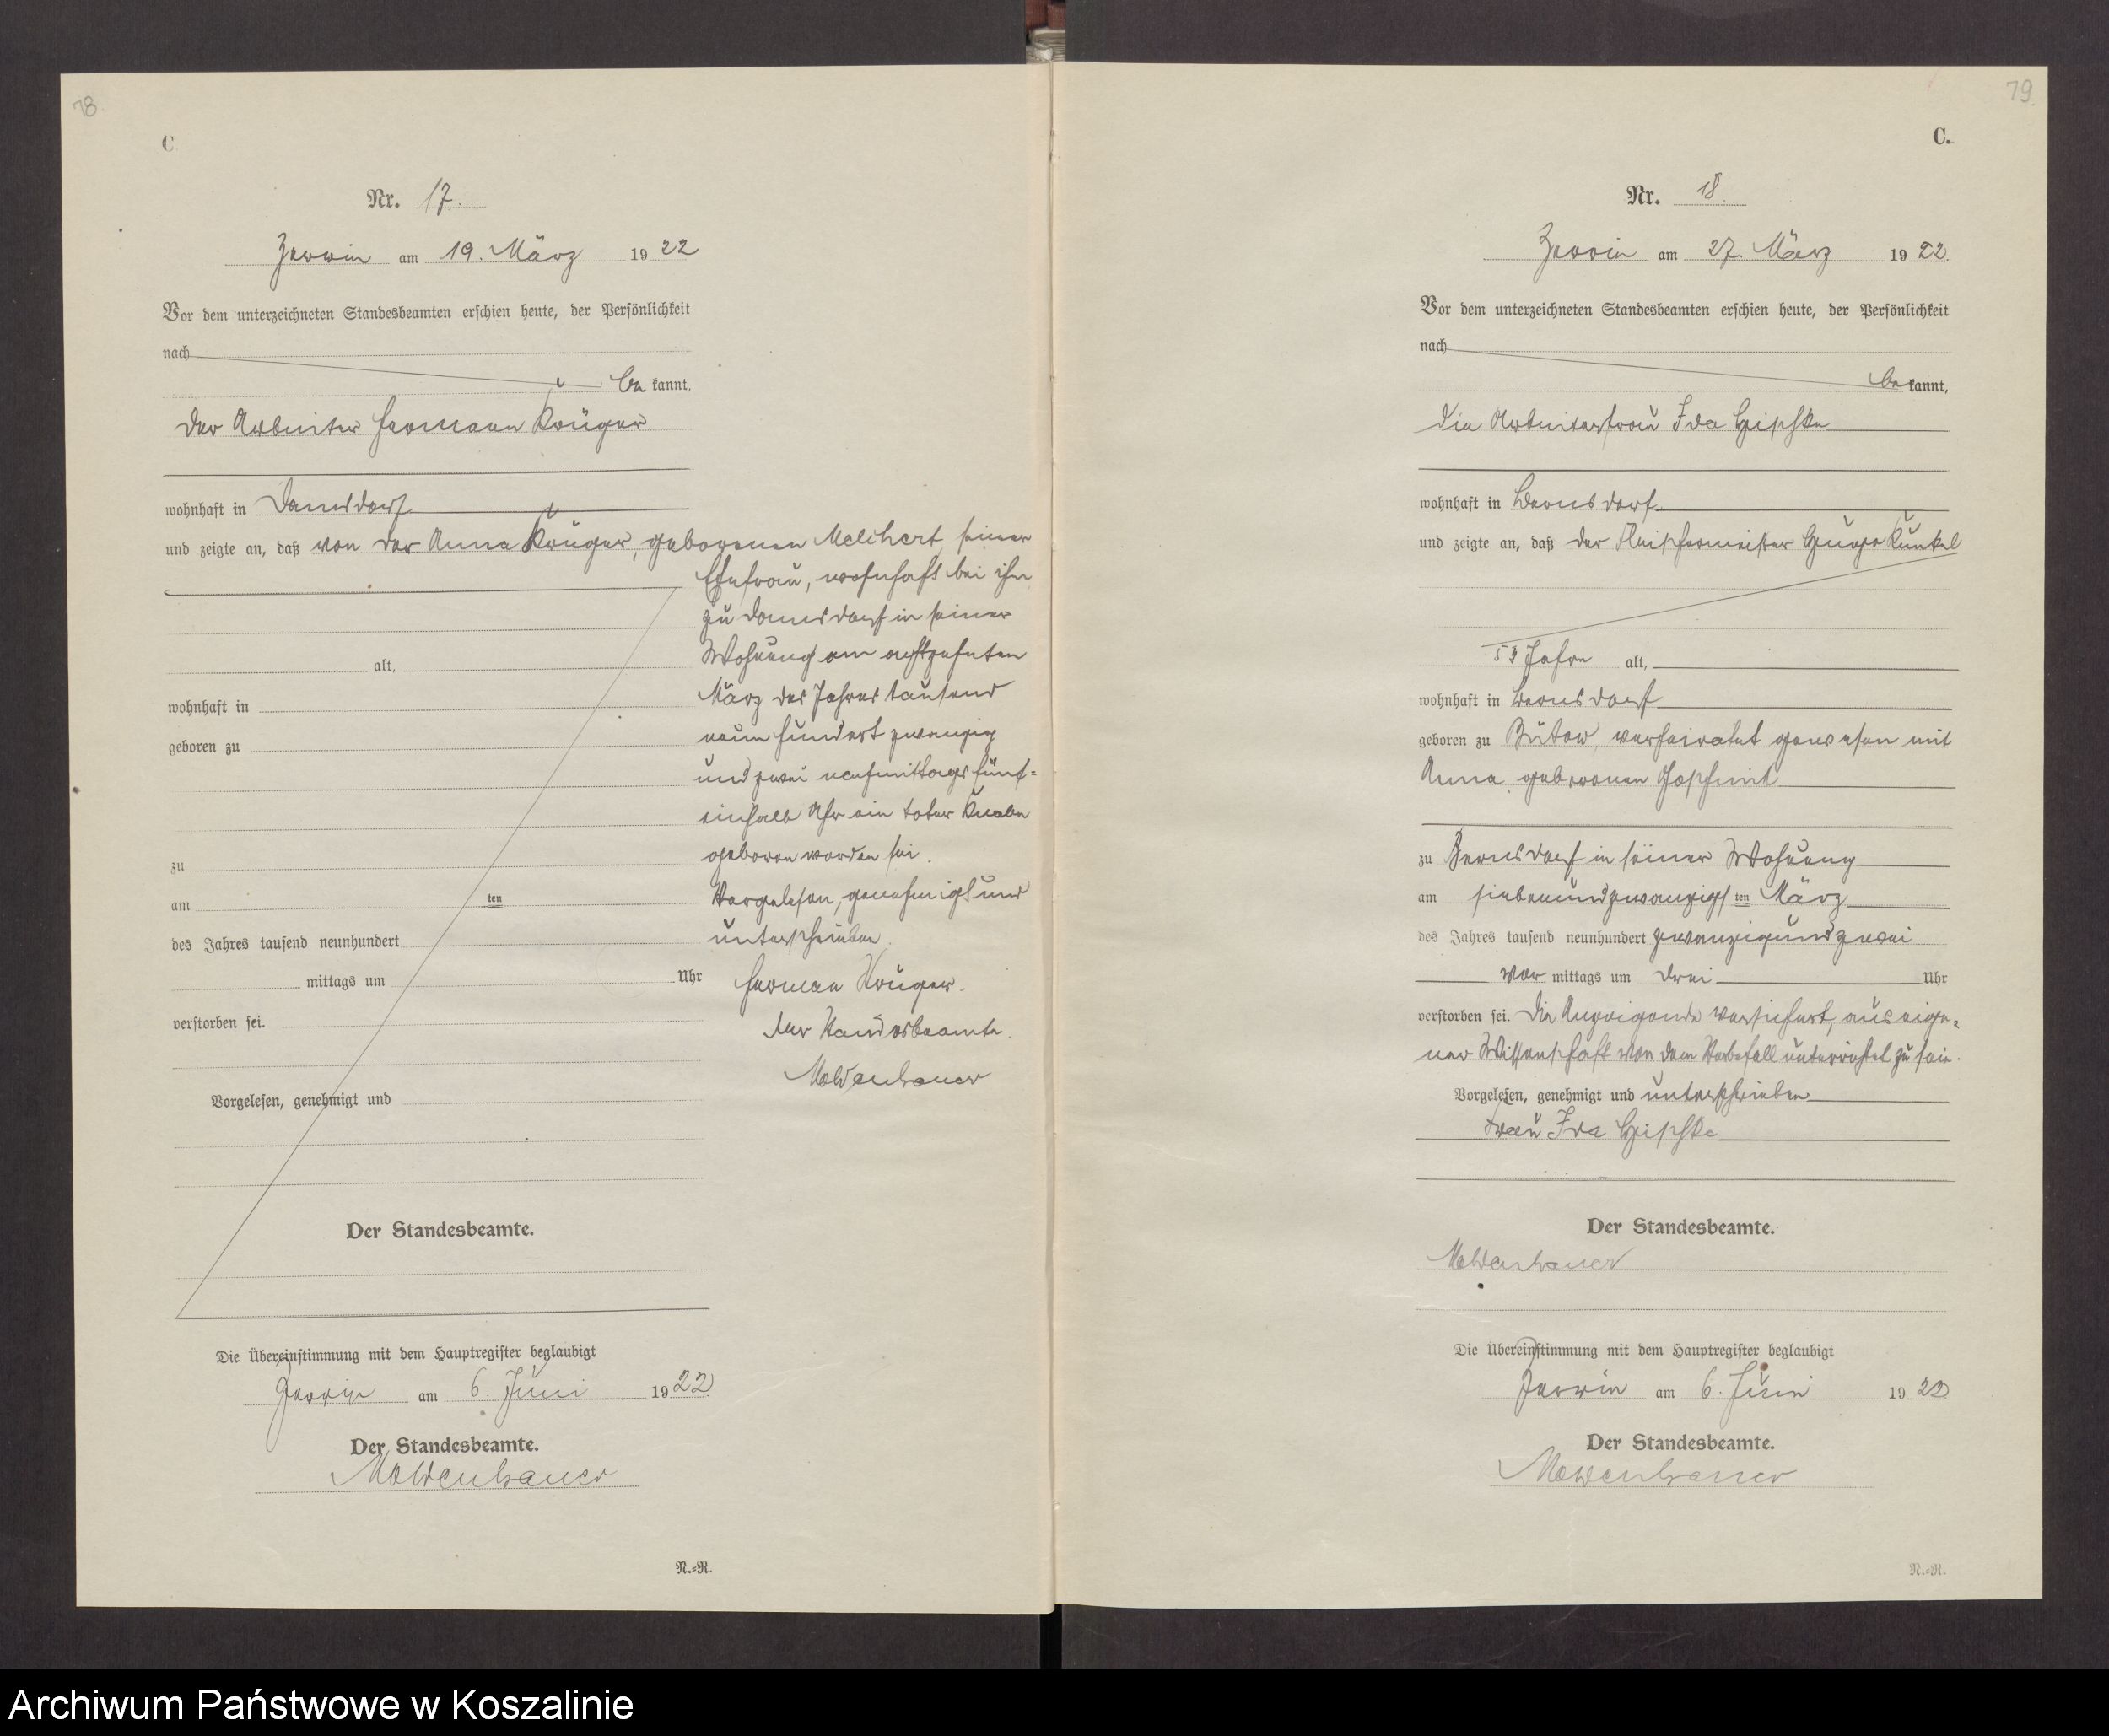 78
C
Nr. 17.
Zerrin am 19. März 1922
Vor dem unterzeichneten Standesbeamten erschien heute, der Persönlichkeit
nach
be kannt,
der Arbeiter Hermann Krüger
wohnhaft in Damsdorf
und zeigte an, daß von der Anna Krüger, geborenen Melchert, seiner
Ehefrau, wohnhaft bei ihm
zu Damsdorf in seiner
Wohnung am achtzehnten
alt,
März des Jahres tausend
wohnhaft in
neun hundert zwanzig
geboren zu
und zwei nachmittags fünf-
einhalb Uhr ein toter Knabe
geboren worden sei.
zu
Vorgelesen, genehmigt und
am ten
unterschrieben.
des Jahres tausend neunhundert
mittags um Uhr
Herman Krüger.
verstorben sei.
Der Standesbeamte.
Moldenhauer
Vorgelesen, genehmigt und
Der Standesbeamte.
Die Übereinstimmung mit dem Hauptregister beglaubigt
Zerrin am 6. Juni 1922
Der Standesbeamte.
Moldenhauer
N.=R.
79
C.
Nr. 18.
Zerrin am 27. März 1922
Vor dem unterzeichneten Standesbeamten erschien heute, der Persönlichkeit
nach
be kannt,
die Arbeiterfrau Ida
wohnhaft in Bernsdorf
und zeigte an, daß der Fleischermeister Kunkel
Jahre alt,
wohnhaft in Bernsdorf
geboren zu Bütow, verheiratet gewesen mit
Anna, geborenen
zu Bernsdorf in seiner Wohnung
am siebenundzwanzigsten März
des Jahres tausend neunhundert zwanzigundzwei
vor mittags um drei Uhr
verstorben sei. Die Anzeigende versichert, aus eige=
ner Wissenschaft von dem Sterbefall unterrichtet zu sein.
Vorgelesen, genehmigt und unterschrieben
Frau Ida
Der Standesbeamte.
Moldenhauer
Die Übereinstimmung mit dem Hauptregister beglaubigt
Zerrin am 6. Juni 1922
Der Standesbeamte.
Moldenhauer
N.=R.
Archiwum Państwowe w Koszalinie